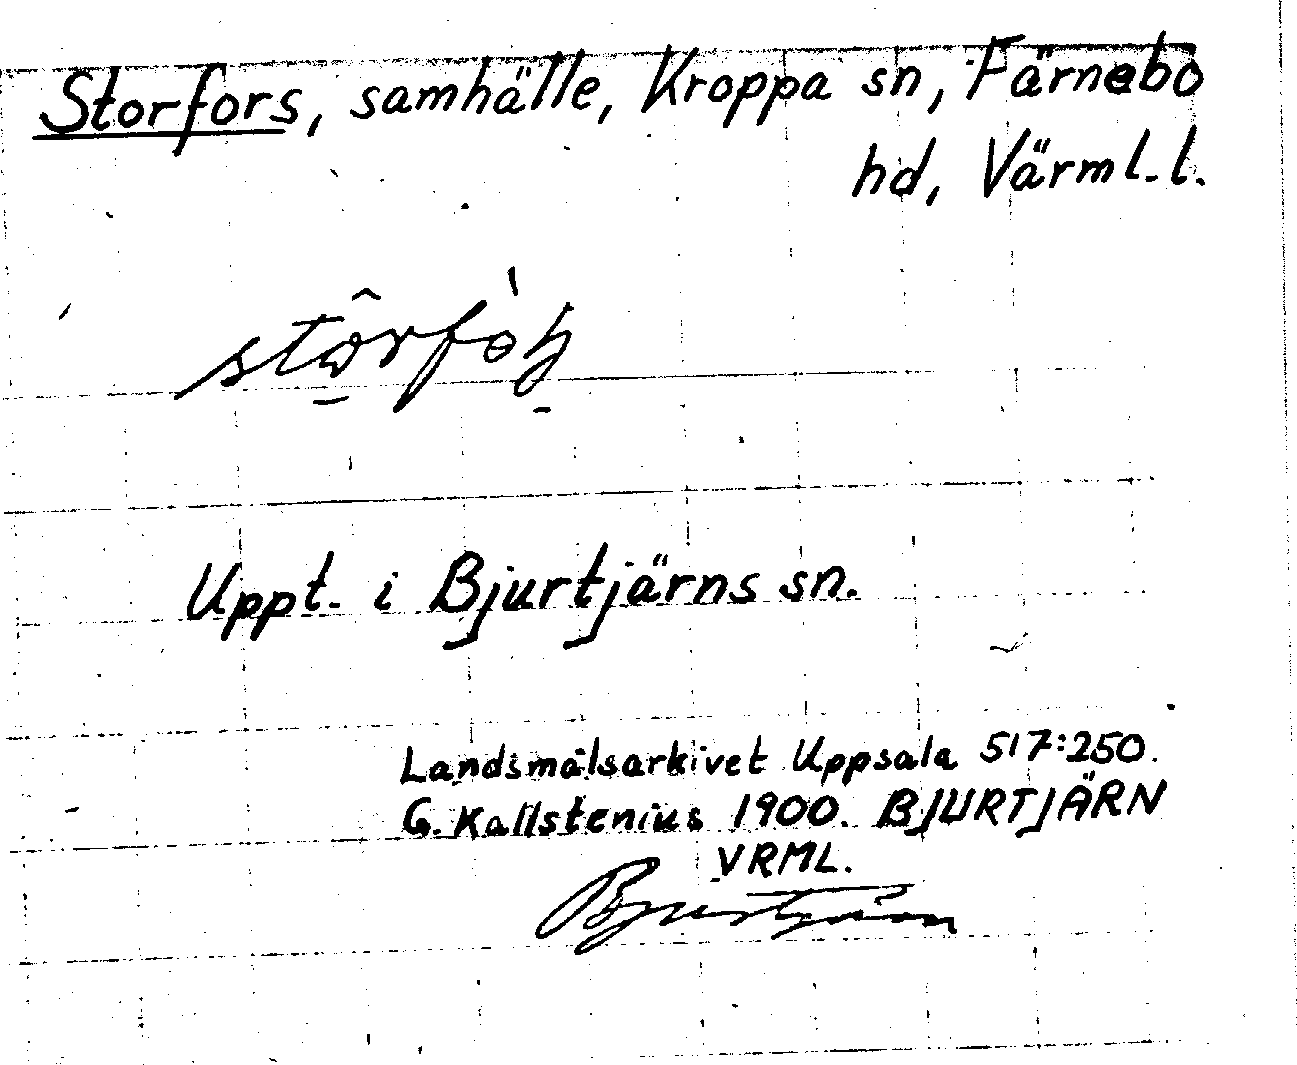 Storfors, samhälle, Kroppa sn, Färnebo
hd, Värml. l.
Uppt. i Bjurtjärns sn.
Landsmålsarkivet Uppsala 517:250.
G. Kallstenius 1900. BJURTJÄRN
VRML.
Bjurtjärn